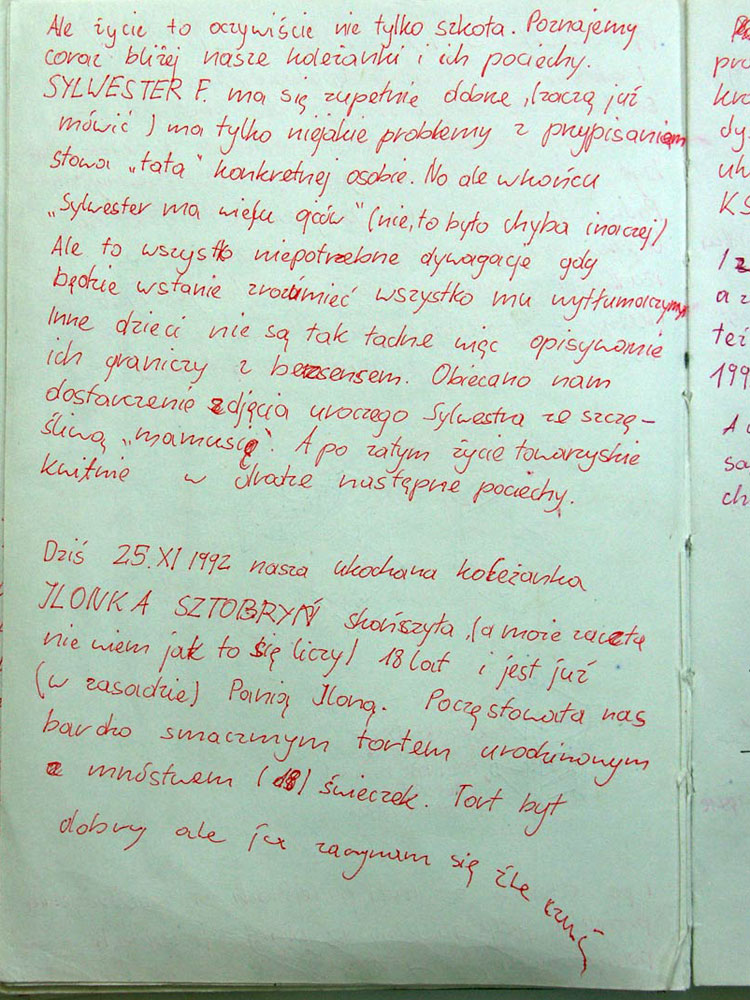 Ale życie to oczywiście nie tylko szkoła. Poznajemy
coraz bliżej nasze koleżanki i ich pociechy.
SYLWESTER F. ma się zupełnie dobrze, (zaczą już
mówić) ma tylko niejakie problemy z przypisaniem
słowa „tata" konkretnej osobie. No ale wkońcu
„Sylwester ma wielu ojców" (nie, to było chyba inaczej)
Ale to wszystko niepotrzebne dywagacje gdy
będzie wstanie zrozumieć wszystko mu wytłumaczymy
Inne dzieci nie są tak ładne więc opisywanie
ich graniczy z bezsensem. Obiecano nam
dostarczenie zdjęcia uroczego Sylwestra ze szczę-
śliwą „mamusią". A po zatym życie towarzyskie
kwitnie w drodze następne pociechy.
Dziś 25.XI 1992 nasza ukochana koleżanka
ILONKA SZTOBRYŃ skończyła, (a może zaczęła
nie wiem jak to się liczy) 18 lat i jest już
(w zasadzie) Panią Iloną. Poczęstowała nas
bardzo smacznym tortem urodzinowym
z mnóstwem (18) świeczek. Tort był
dobry ale ja zaczynam się źle czuć
pro
kro
dy
uk
KS
1 z
a z
też
199
A
sa
ch